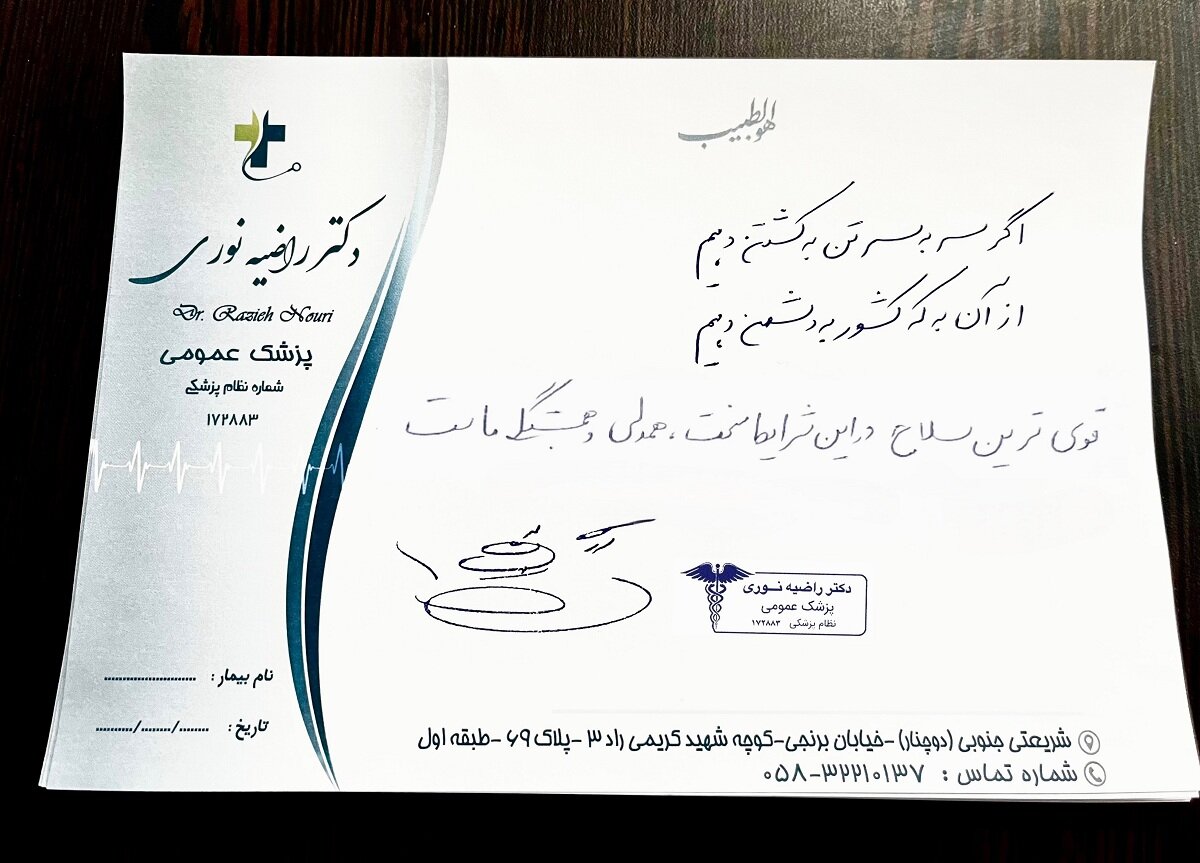 هوالطبیب
اگر سر به سر تن به کشتن دهیم
از آن به که کشور به دشمن دهیم
قوی ترین سلاح در این شرایط سخت، همدلی و همبستگی ماست
دکتر راضیه نوری
Dr. Razieh Nouri
پزشک عمومی
شماره نظام پزشکی
۱۷۲۸۸۳
دکتر راضیه نوری
پزشک عمومی
نظام پزشکی ۱۷۲۸۸۳
نام بیمار : ........................
تاریخ : ......../......../..........
شریعتی جنوبی (دوچنار) -خیابان برنجی-کوچه شهید کریمی راد ۳ -پلاک ۶۹ -طبقه اول
شماره تماس : ۰۵۸-۳۲۲۱۰۱۳۷